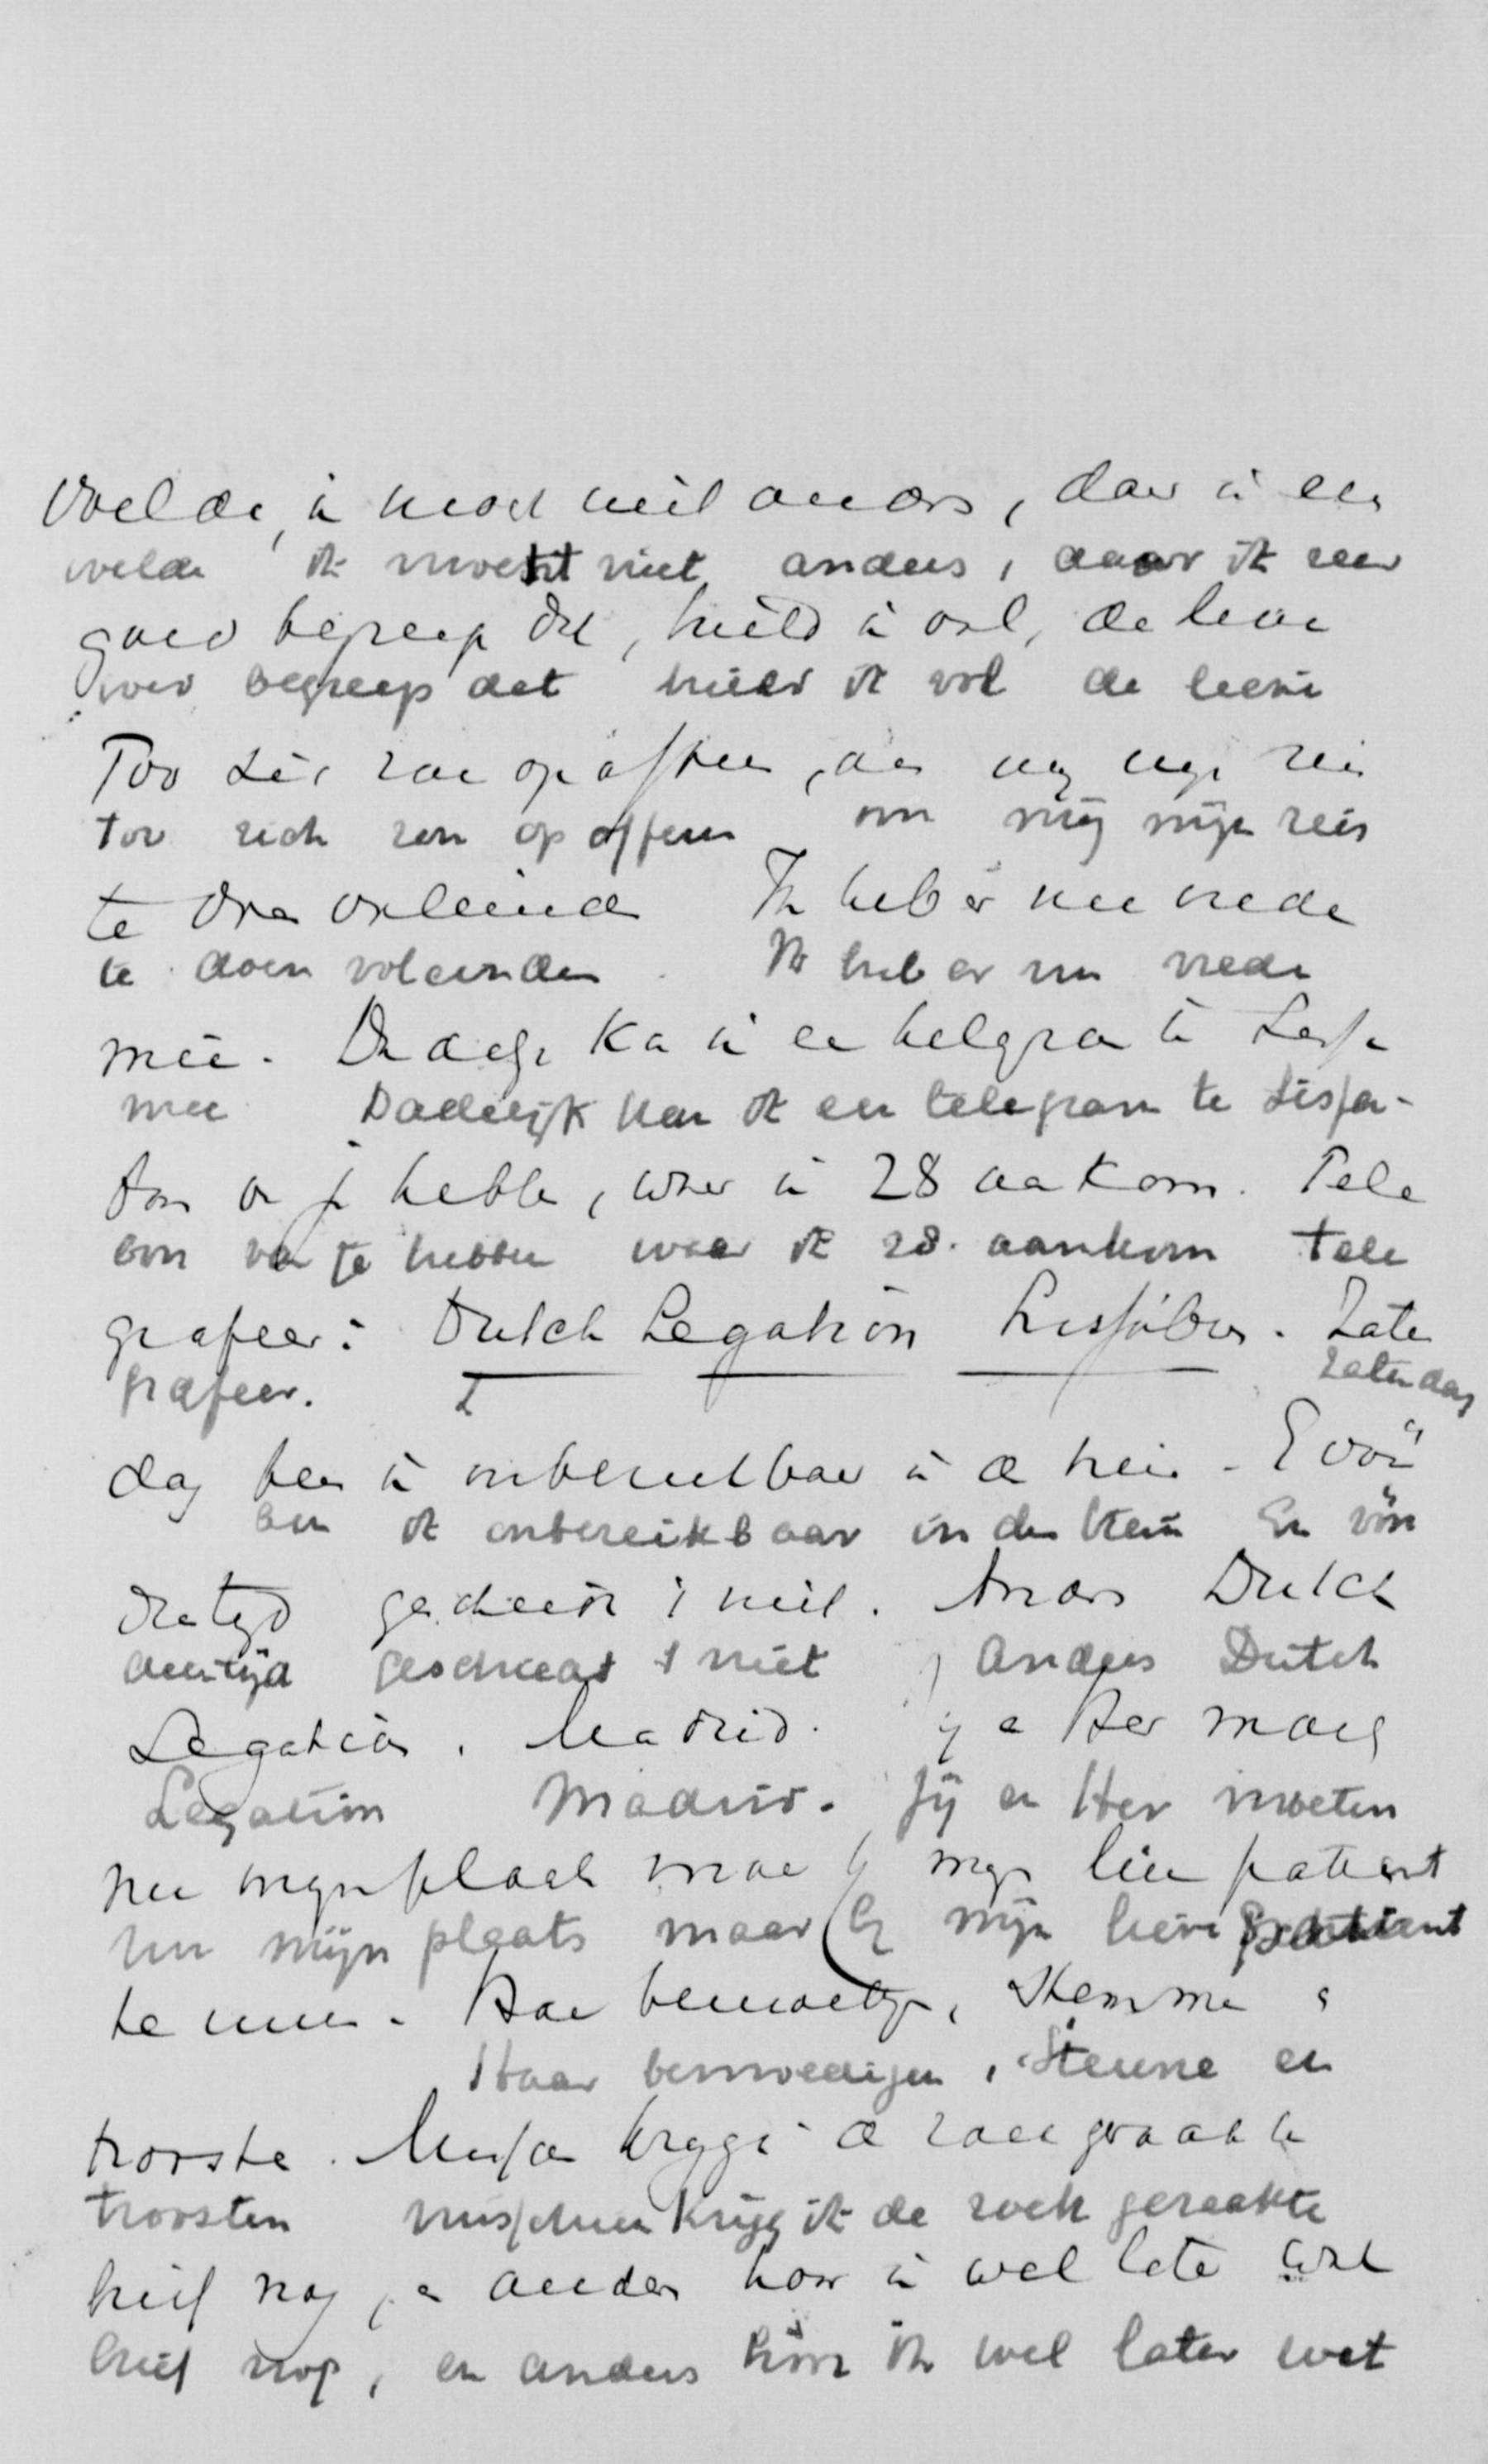 voelde, ik mocht niet anders, daar ik een
welde ik mocht niet anders, daar ik zeer
goed begreep dat, hield ik vol, de lieve
goed begreep dat hield ik vol de lieve
Too zich zou opofferen, om mij mijn reis
Too zich zou op offeren om mij mijn reis
te doen voleinden Ik heb er nu vrede
te doen voleinden. Ik heb er nu vrede
mee. Dadelijk kan ik een telegram te Lissa
mee Dadelijk kan ik een telegram te Lissa-
bon van je hebben, waar ik 28 aankom. Tele
bon van je hebben waar ik 28. aankom tele
grafeer: Dutch Legation Lissabon. Zater
grafeer. Zaterdag
dag ben ik onbereikbaar in de trein. En vóór
ben ik onbereikbaar in den trein En vóór
dien tijd geschiedt 't niet. Anders Dutch
dien tijd geschiedt 't niet, anders Dutch
Legation. Madrid. Jij en Her moeten
Legation Madrid. Jij en Her moeten
nu mijn plaats maar bij mijn lieve patient
nu mijn plaats maar bij mijn lieve patient
te nemen. Haar bemoedigen, steunen en
Haar bemoedigen, steunen en
troosten. Misschien krijg ik de zoek geraakte
troosten misschien krijg ik de zoek geraakte
brief nog, en anders hoor ik wel later wat
brief nog, en anders hoor ik wel later wat